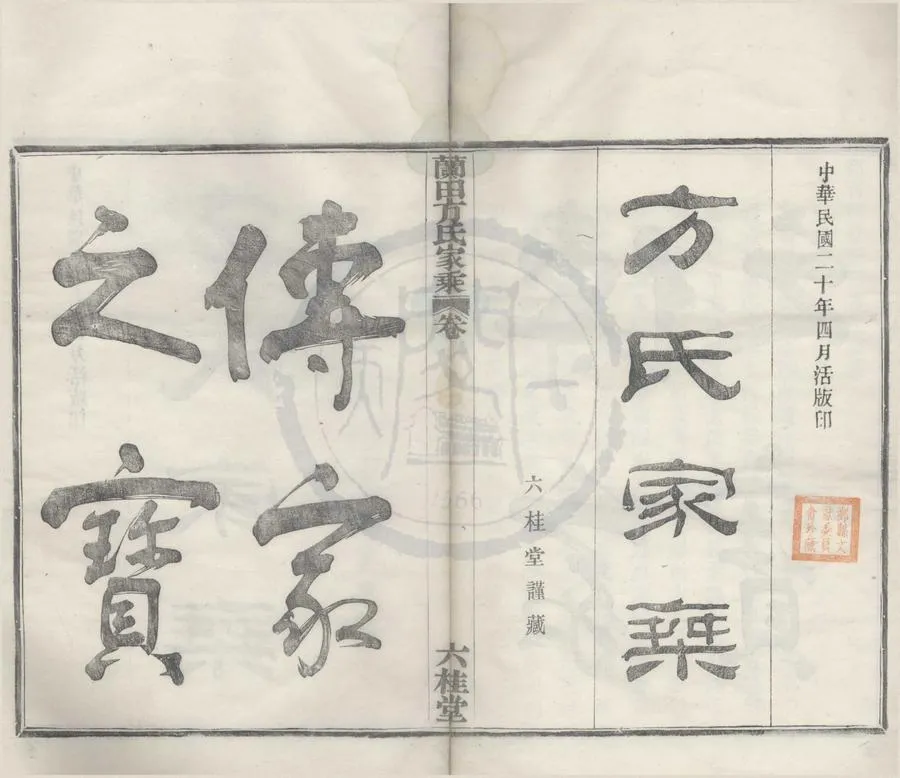 中華民國二十年四月活版印
方氏家乘
六桂堂謹藏
蘭田方氏家乘 卷 六桂堂
傳家
之寶